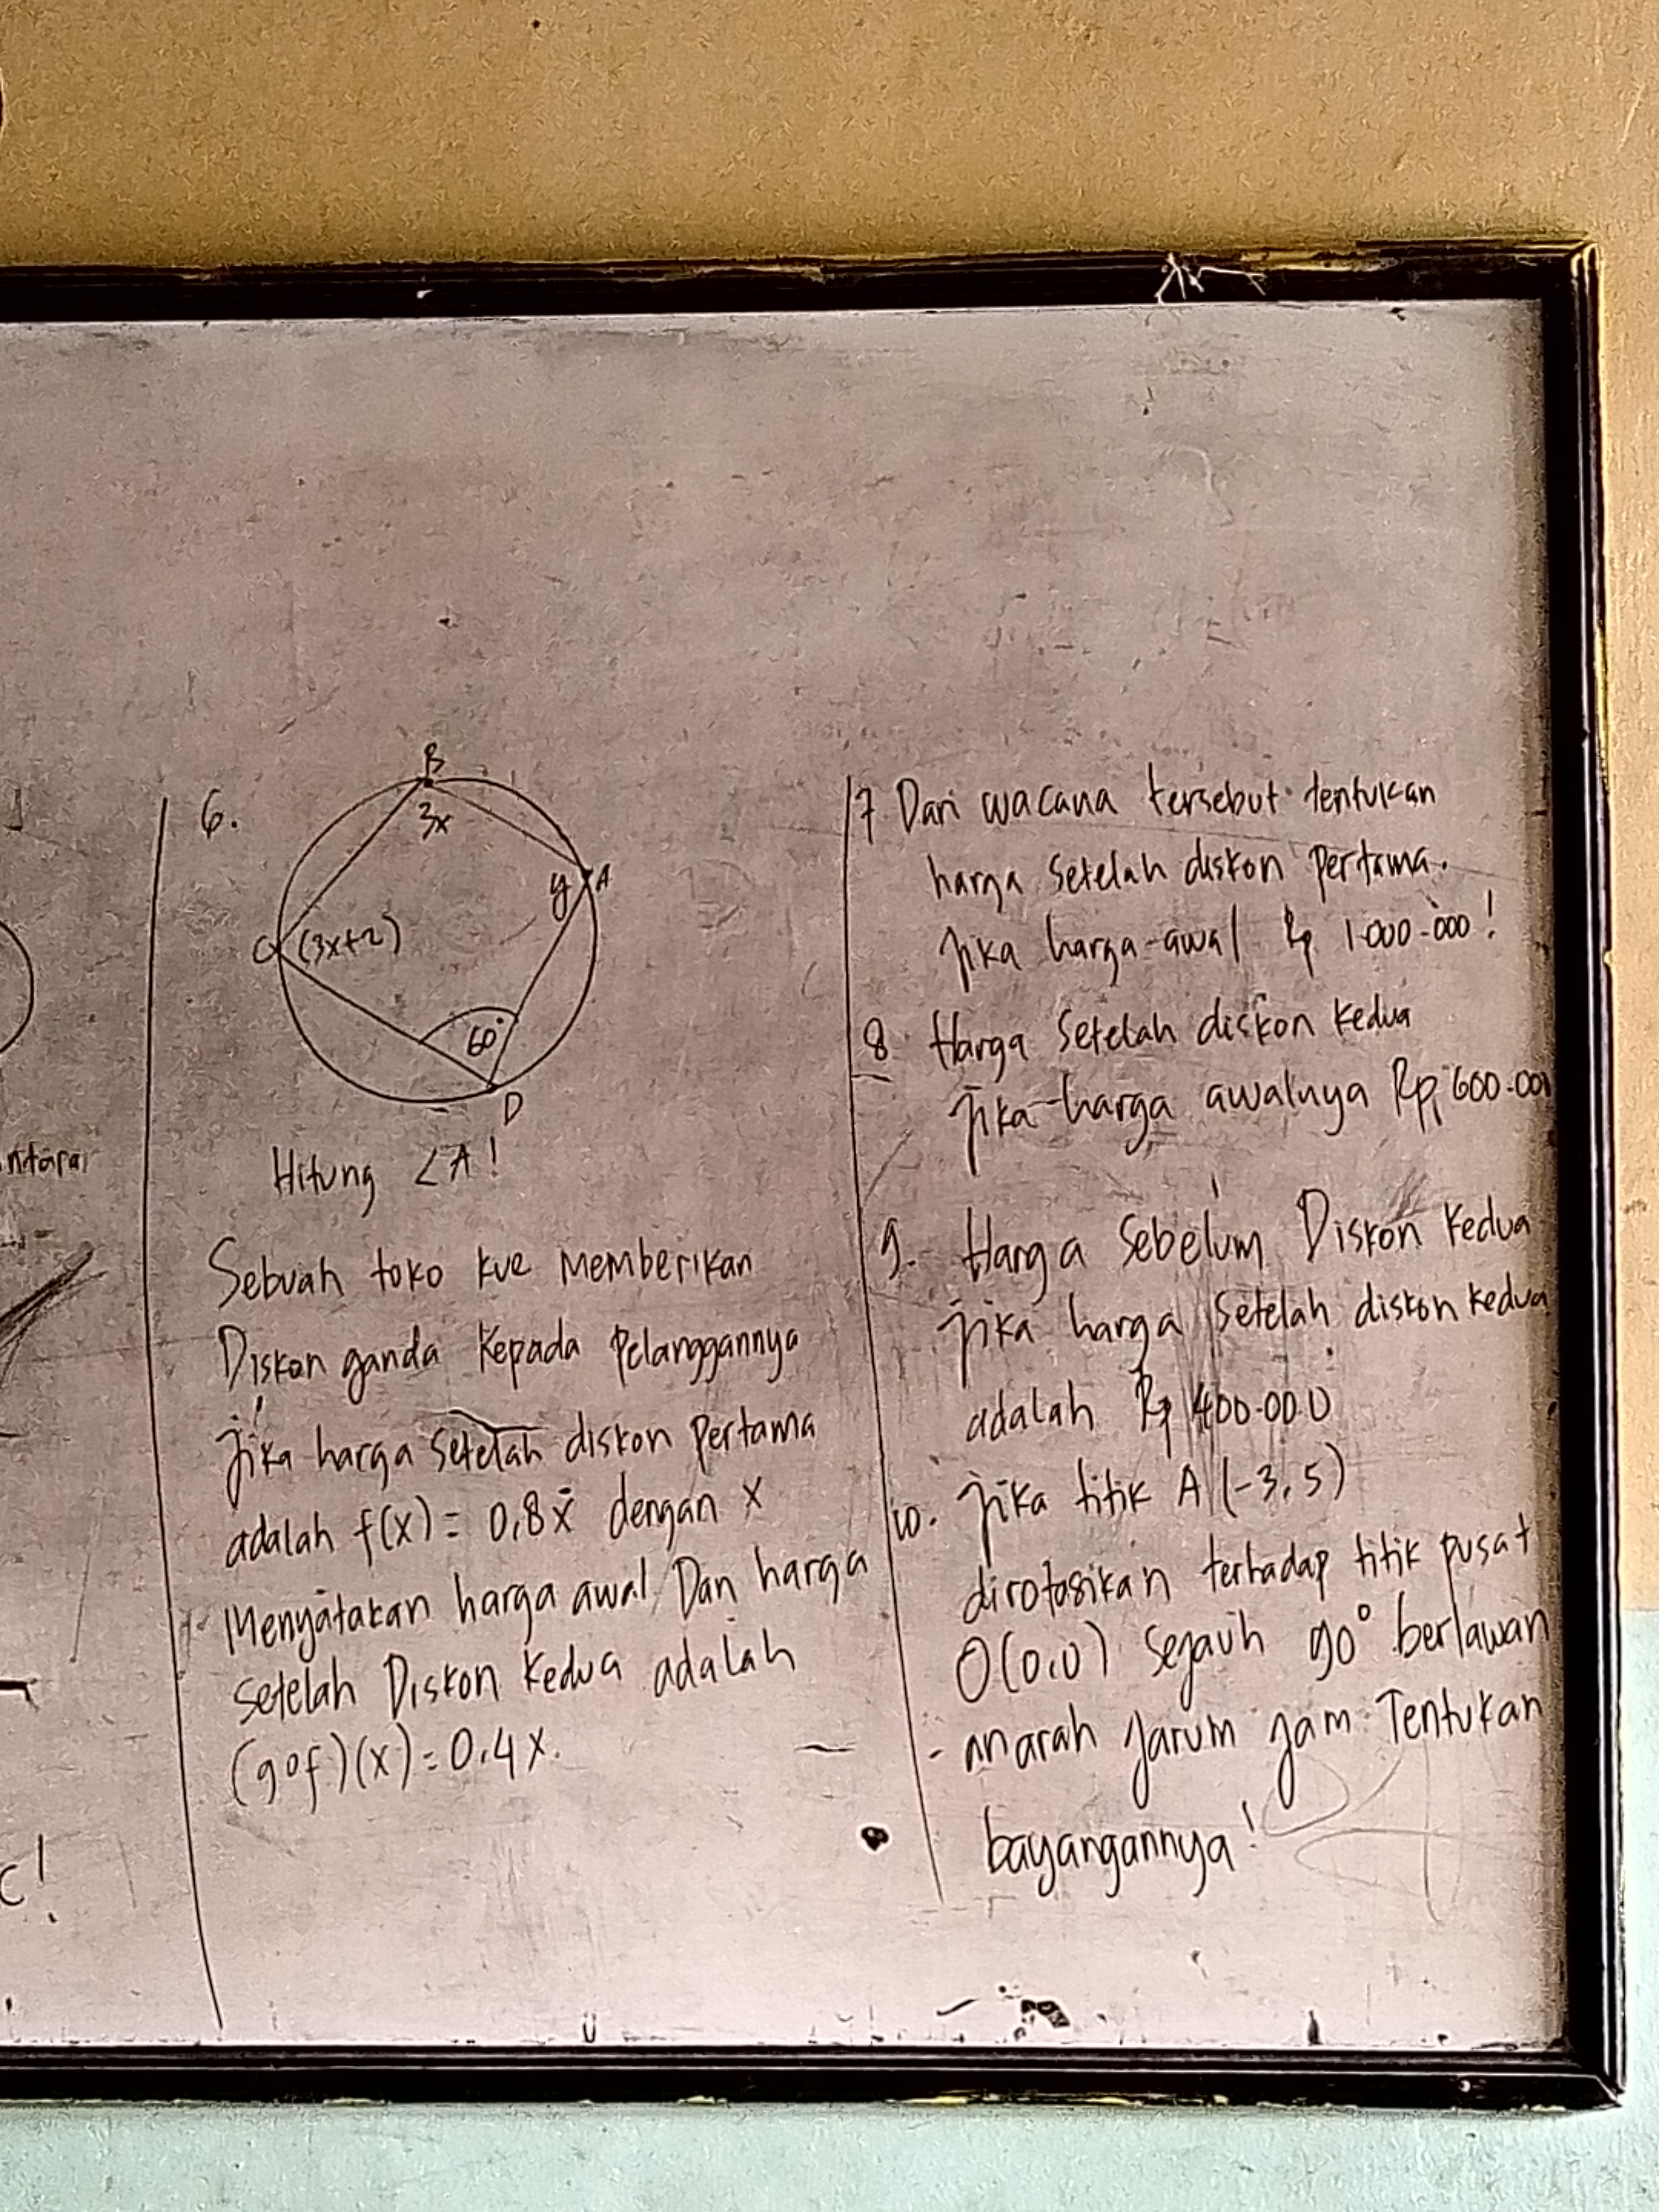 ntara
C!
6.
B
3x
y A
C (3x+2)
60°
D
Hitung ∠A!
Sebuah toko kue memberikan
Diskon ganda kepada pelanggannya
jika harga setelah diskon pertama
adalah f(x) = 0,8x dengan x
Menyatakan harga awal Dan harga
setelah Diskon kedua adalah
(gof)(x) = 0.4x.
7 Dari wacana tersebut tentukan
harga setelah diskon pertama.
jika harga awal Rp 1.000.000!
8 Harga setelah diskon kedua
jika harga awalnya Rp, 600.000
9. Harga sebelum Diskon kedua
jika harga setelah diskon kedua
adalah Rp 400.000
10. jika titik A (-3,5)
dirotasikan terhadap titik pusat
O(0,0) sejauh 90° berlawan
-an arah jarum jam. Tentukan
bayangannya!